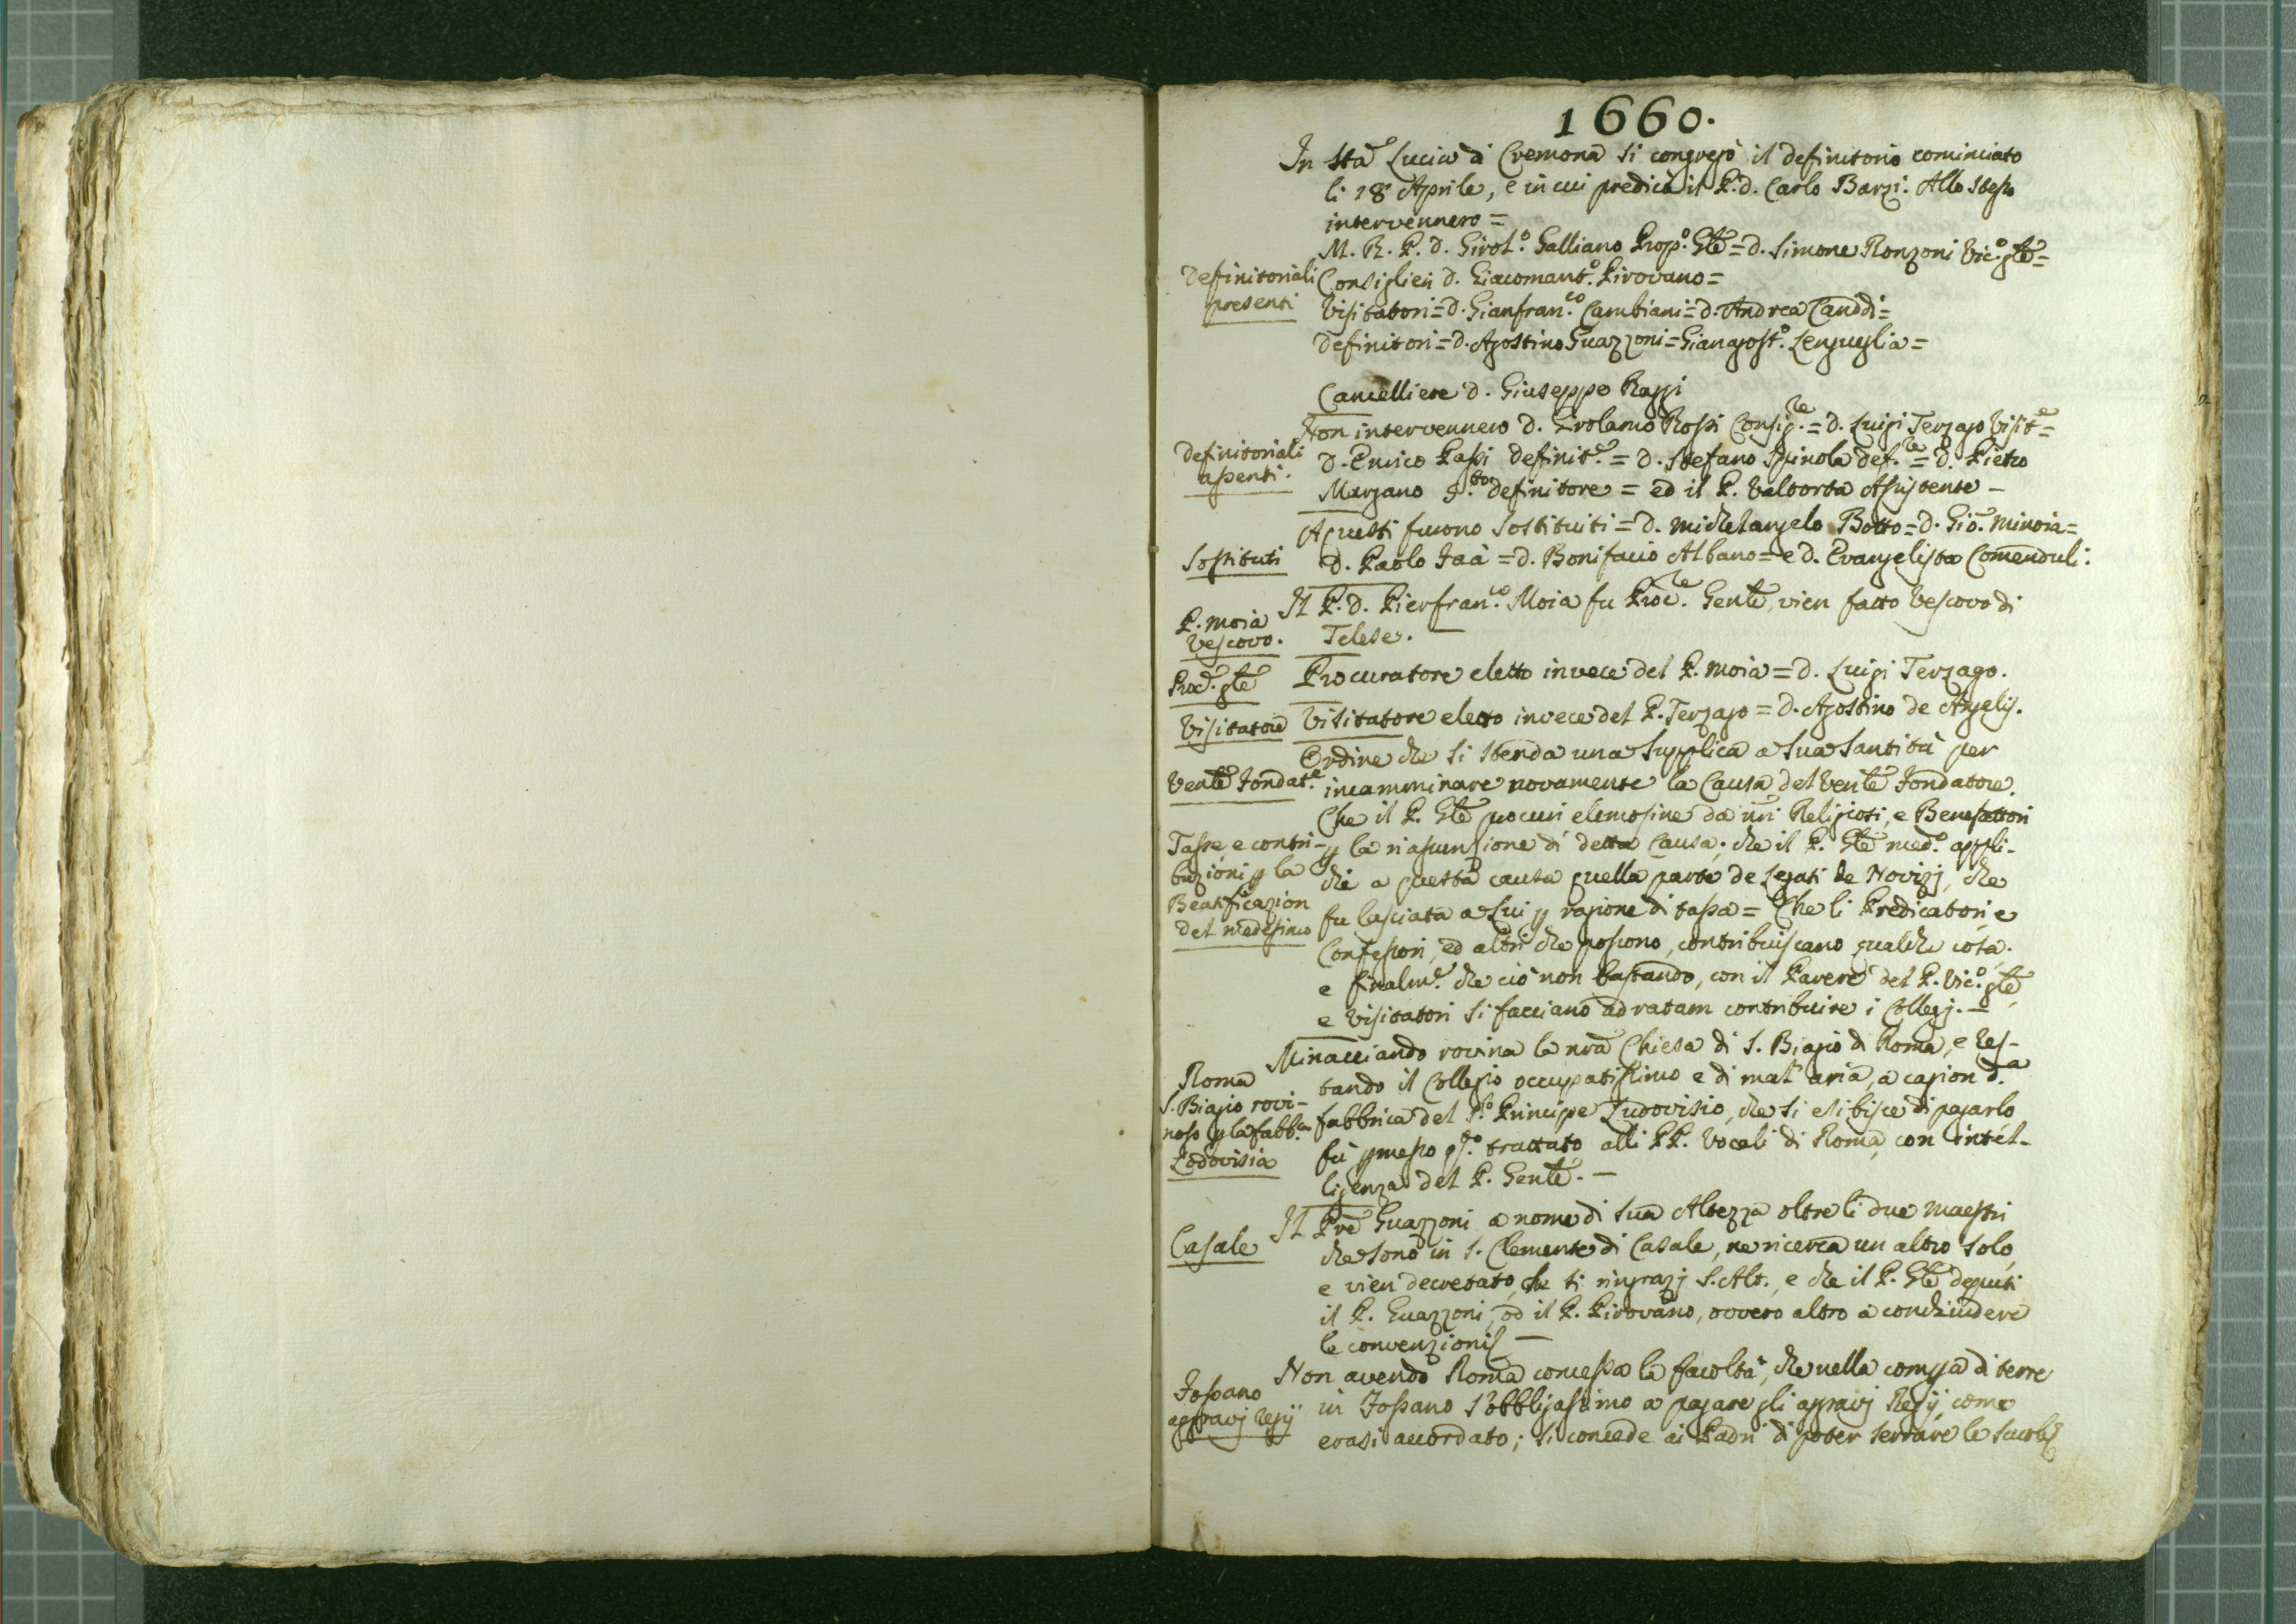 1660.
In Sta Lucia di Cremona si congregò il definitorio cominciato
li 18 Aprile, e in cui predica il P. D. Carlo Barzi. Allo stesso
intervennero =
M. R. P. D. Girol.o Galliano Prop.o Gle = D. Simone Ronzoni Vic.o gle =
Definitoriali
presenti
Consiglieri D. Giacomant.o Pirovano =
Visitatori = D. Gianfran.co Cambiani = D. Andrea Canddi =
Definitori = D. Agostino Guazzoni = Giangost.o Lengueglia =
Cancelliere D. Giuseppe Razzi
Definitoriali
assenti.
Non intervennero D. Girolamo Rossi Consig.re = D. Luigi Terzago Visit.e =
D. Enrico Passi definit.e = D. Stefano Spinola def.re = D. Pietro
Marzano definitore = ed il P. Valtorta Assistente -
Sostituti
A questi furono sostituiti = D. Michelangelo Botto = D. Gio. Minoia =
D. Paolo Isà = D. Bonifacio Albano = e D. Evangelista Comenduli:
P. Moia
Vescovo.
Il P. D. Pierfran.co Moia fu Proc.re Genle, vien fatto Vescovo di
Telese.
Proc. gle
Procuratore eletto invece del P. Moia = D. Luigi Terzago.
Visitatore
Visitatore eletto invece del P. Terzago = D. Agostino de Angelis.
Venle Fondat.e
Ordine che si stenda una supplica a sua Santità per
incamminare novamente la Causa del Venle Fondatore.
Tasse, e contri-
buzioni p la
Beatificazion
del medesimo
Che il P. Gle procuri elemosine da nri Religiosi, e Benefattori
p la riassunsione di detta Causa; che il P. Gle med.o appli-
chi a questa causa quella parte de Legati de Novizj, che
fu lasciata a Lui p ragione di tassa = Che li Predicatori, e
Confessori, ed altri che possono, contribuiscano qualche cosa;
e finalm.e che ciò non bastando, con il Parere del P. Vic.o gle,
e Visitatori si facciano ad ratam contribuire i Collegj. -
Roma
S. Biagio rovi-
noso p la fabb.ca
Lodovisia
Minacciando rovina la nra Chiesa di S. Biagio di Roma, e res-
tando il Collegio occupatissimo e di mal' aria, a cagion d.a
fabbrica del S.r Principe Ludovisio, che si esibisce di pagarlo,
fù pmesso q.to trattato alli PP. Vocali di Roma, con intel-
ligenza del P. Genle. -
Casale
Il Pre Guazzoni a nome di Sua Altezza oltre li due maestri
che sono in S. Clemente di Casale, ne ricerca un altro solo,
e vien decretato, che si ringrazj S. Alt., e che il P. Gle deputi
il P. Guazzoni, od il P. Pirovano, ovvero altro a conchiudere
le convenzioni -
Fossano
aggravj Regij
Non avendo Roma concessa la facoltà, che nella compra di terre
in Fossano s'obbligassimo a pagare gli aggravj Regij, come
erasi accordato; si concede ai Padri di poter serrare le scuole